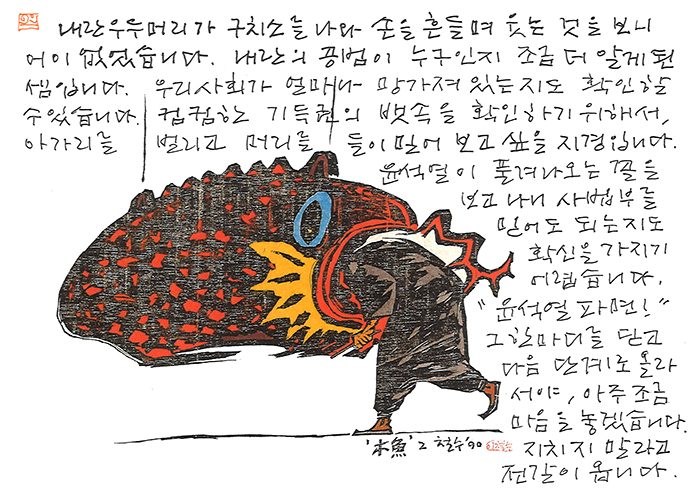 내란우두머리가 구치소를 나와 손을 흔들며 웃는 것을 보니
어이 없었습니다. 내란의 공범이 누구인지 조금 더 알게 된
셈입니다. 우리사회가 얼마나 망가져 있는지도 확인할
수 있습니다. 컴컴한 기득권의 뱃속을 확인하기 위해서,
아가리를 벌리고 머리를 들이밀어 보고 싶을 지경입니다.
윤석열이 풀려나오는 꼴을
보고 나니 사법부를
믿어도 되는지도
확신을 가지기
어렵습니다.
"윤석열 파면!"
그 한마디를 듣고
다음 단계로 올라
서야, 아주 조금
마음을 놓겠습니다.
지치지 말라고
전갈이 옵니다.
'木魚' 2 철수 90